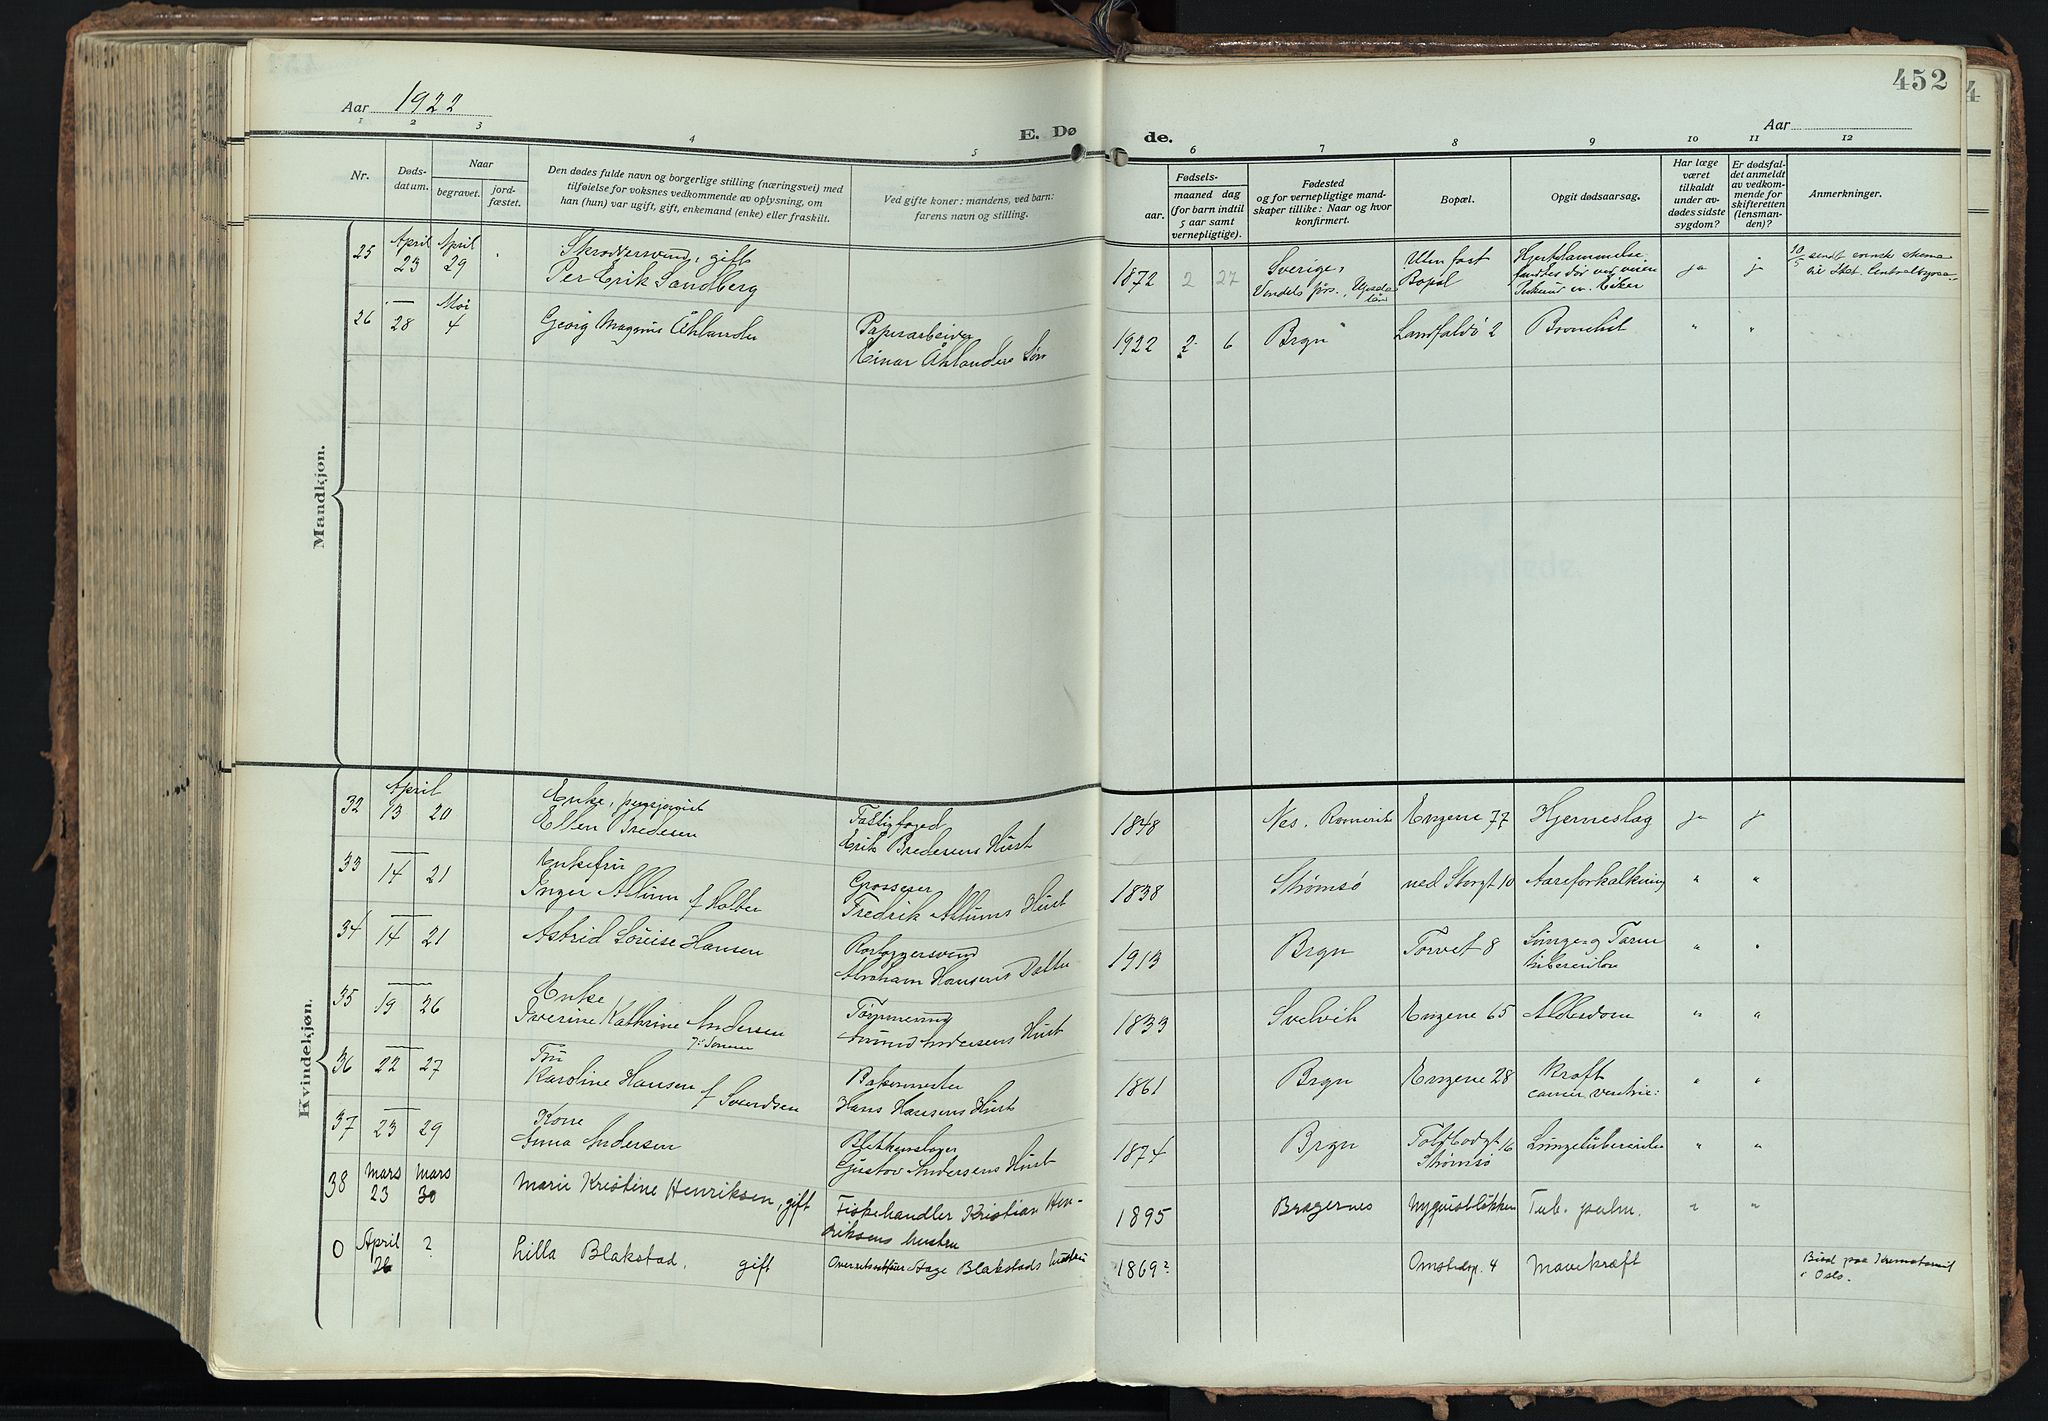 452
Aar 1922
E. Dø de.
Aar
1 2 3 4 5 6 7 8 9 10 11 12
Nr.
Døds-
datum.
Naar
begravet.
jord-
fæstet.
Den dødes fulde navn og borgerlige stilling (næringsvei) med
tilføielse for voksnes vedkommende av oplysning, om
han (hun) var ugift, gift, enkemand (enke) eller fraskilt.
Ved gifte koner: mandens, ved barn:
farens navn og stilling.
Fødsels-
aar.
maaned dag
(for barn indtil
5 aar samt
vernepligtige).
Fødested
og for vernepligtige mand-
skaper tillike: Naar og hvor
konfirmert.
Bopæl.
Opgit dødsaarsag.
Har læge
været
tilkaldt
under av-
dødes sidste
sygdom?
Er dødsfal-
det anmeldt
av vedkom-
mende for
skifteretten
(lensman-
den)?
Anmerkninger.
Mandkjøn.
25 April 23 April 29
Skræddersvend, gift
Per Erik Sandberg
1872 2 27
Sverige,
Vendels prs.,
Uten fast
Bopæl
Hjertelammelse
ja j
26 — 28 Mai 4
Georg Magnus Åhlander
Papirarbeider
Einar Åhlanders Søn
1922 2 6 Brgn Landfaldø 2 Bronchit " "
Kvindekjøn.
32 April 13 20
Enke, pensjonist
Ellen Bredesen
Erik Bredesens Hust
1848 Nes, Romerike Engene 77 Hjerneslag ja j
33 — 14 21
Enkefru
Inger Allum f Holter
Grosserer
Fredrik Allums Hust
1838 Strømsø ned Storgt 10 Aareforkalkning " "
34 — 14 21
Astrid Lovise Hansen
Rørlæggersvend
Abraham Hansens Datter
1913 Brgn Torvet 8 Lunge og Tarm
tuberculose " "
35 — 19 26
Enke
Iverine Kathrine Andersen
Tømmermand
Andersens Hust
1833 Svelvik Engene 65 Alderdom " "
36 — 22 27
Fru
Karoline Hansen f Svendsen
Bakermester
Hans Hansens Hust
1861 Brgn Engene 28 Kræft
cancer ventric: " "
37 — 23 29
Kone
Anna Andersen
Blikkenslager
Gustav Andersens Hust
1874 Brgn Toldbodgt 16
Strømsø
Lungetuberculose " "
38 Mars 23 Mars 30
Marie Kristine Henriksen, gift
Fiskehandler Kristian Hen-
riksens hustru
1895 Bragernes Nygusbløkken Tub. pulm. " "
0 April 26 ?
Lilla Blakstad, gift
Overretssakfører Aage Blakstads hustru
1869? Omstedgt. 4 Mavekræft
Brænd paa Krematoriet
i Oslo.